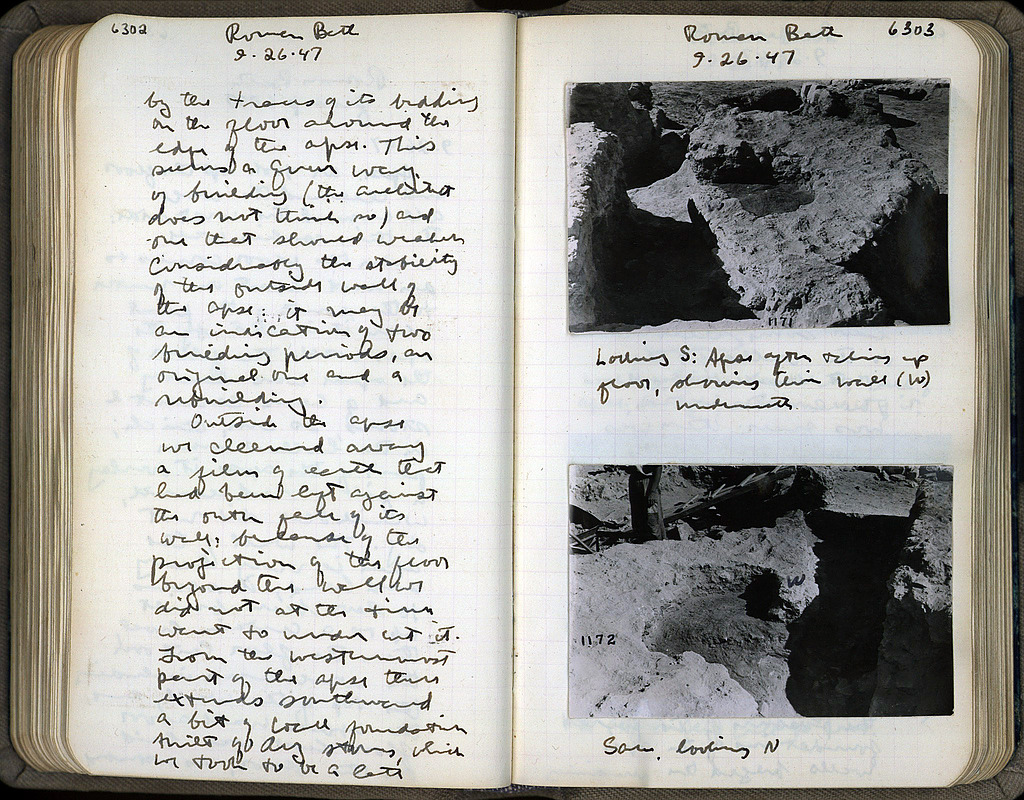 6302
Roman Bath
9·26·47
by the traces of its bedding
on the floor around the
edge of the apse. This
seems a queer way
of building (the architect
does not think so) and
one that should weaken
considerably the stability
of the outside wall of
the apse; it may be
an indication of two
building periods, an
original one and a
rebuilding.
Outside the apse
we cleaned away
a film of earth that
had been left against
the outer face of its
wall; because of the
projection of the floor
beyond the wall we
did not at the time
want to under cut it.
From the westernmost
part of the apse there
extends southward
a bit of wall foundation
built of dry stones, which
we took to be a late
Roman Bath
6303
9·26·47
1171
Looking S: Apse after taking up
floor, showing thin wall (W)
underneath
W
1172
Same, looking N